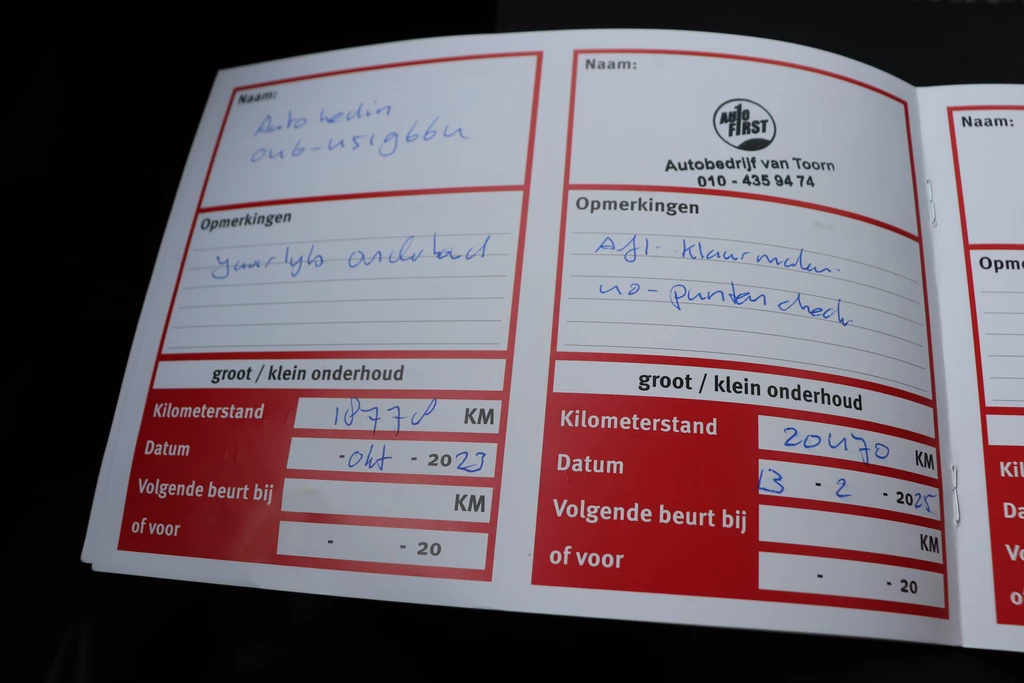 Naam:
Opmerkingen
jaarlijks onderhoud
groot / klein onderhoud
Kilometerstand 18778 KM
Datum - okt - 2023
Volgende beurt bij KM
of voor - - 20
Naam:
AUTO FIRST
Autobedrijf van Toorn
010 - 435 94 74
Opmerkingen
Afl. klaarmaken.
40-punten check
groot / klein onderhoud
Kilometerstand 20470 KM
Datum 13 - 2 - 2025
Volgende beurt bij KM
of voor - - 20
Naam: